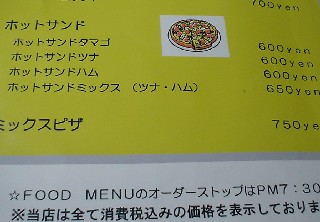 700yen
ホットサンド
ホットサンドタマゴ 600yen
ホットサンドツナ 600yen
ホットサンドハム 600yen
ホットサンドミックス (ツナ・ハム) 650yen
ミックスピザ 750ye
☆FOOD MENUのオーダーストップはPM7:30
※当店は全て消費税込みの価格を表示しておりま